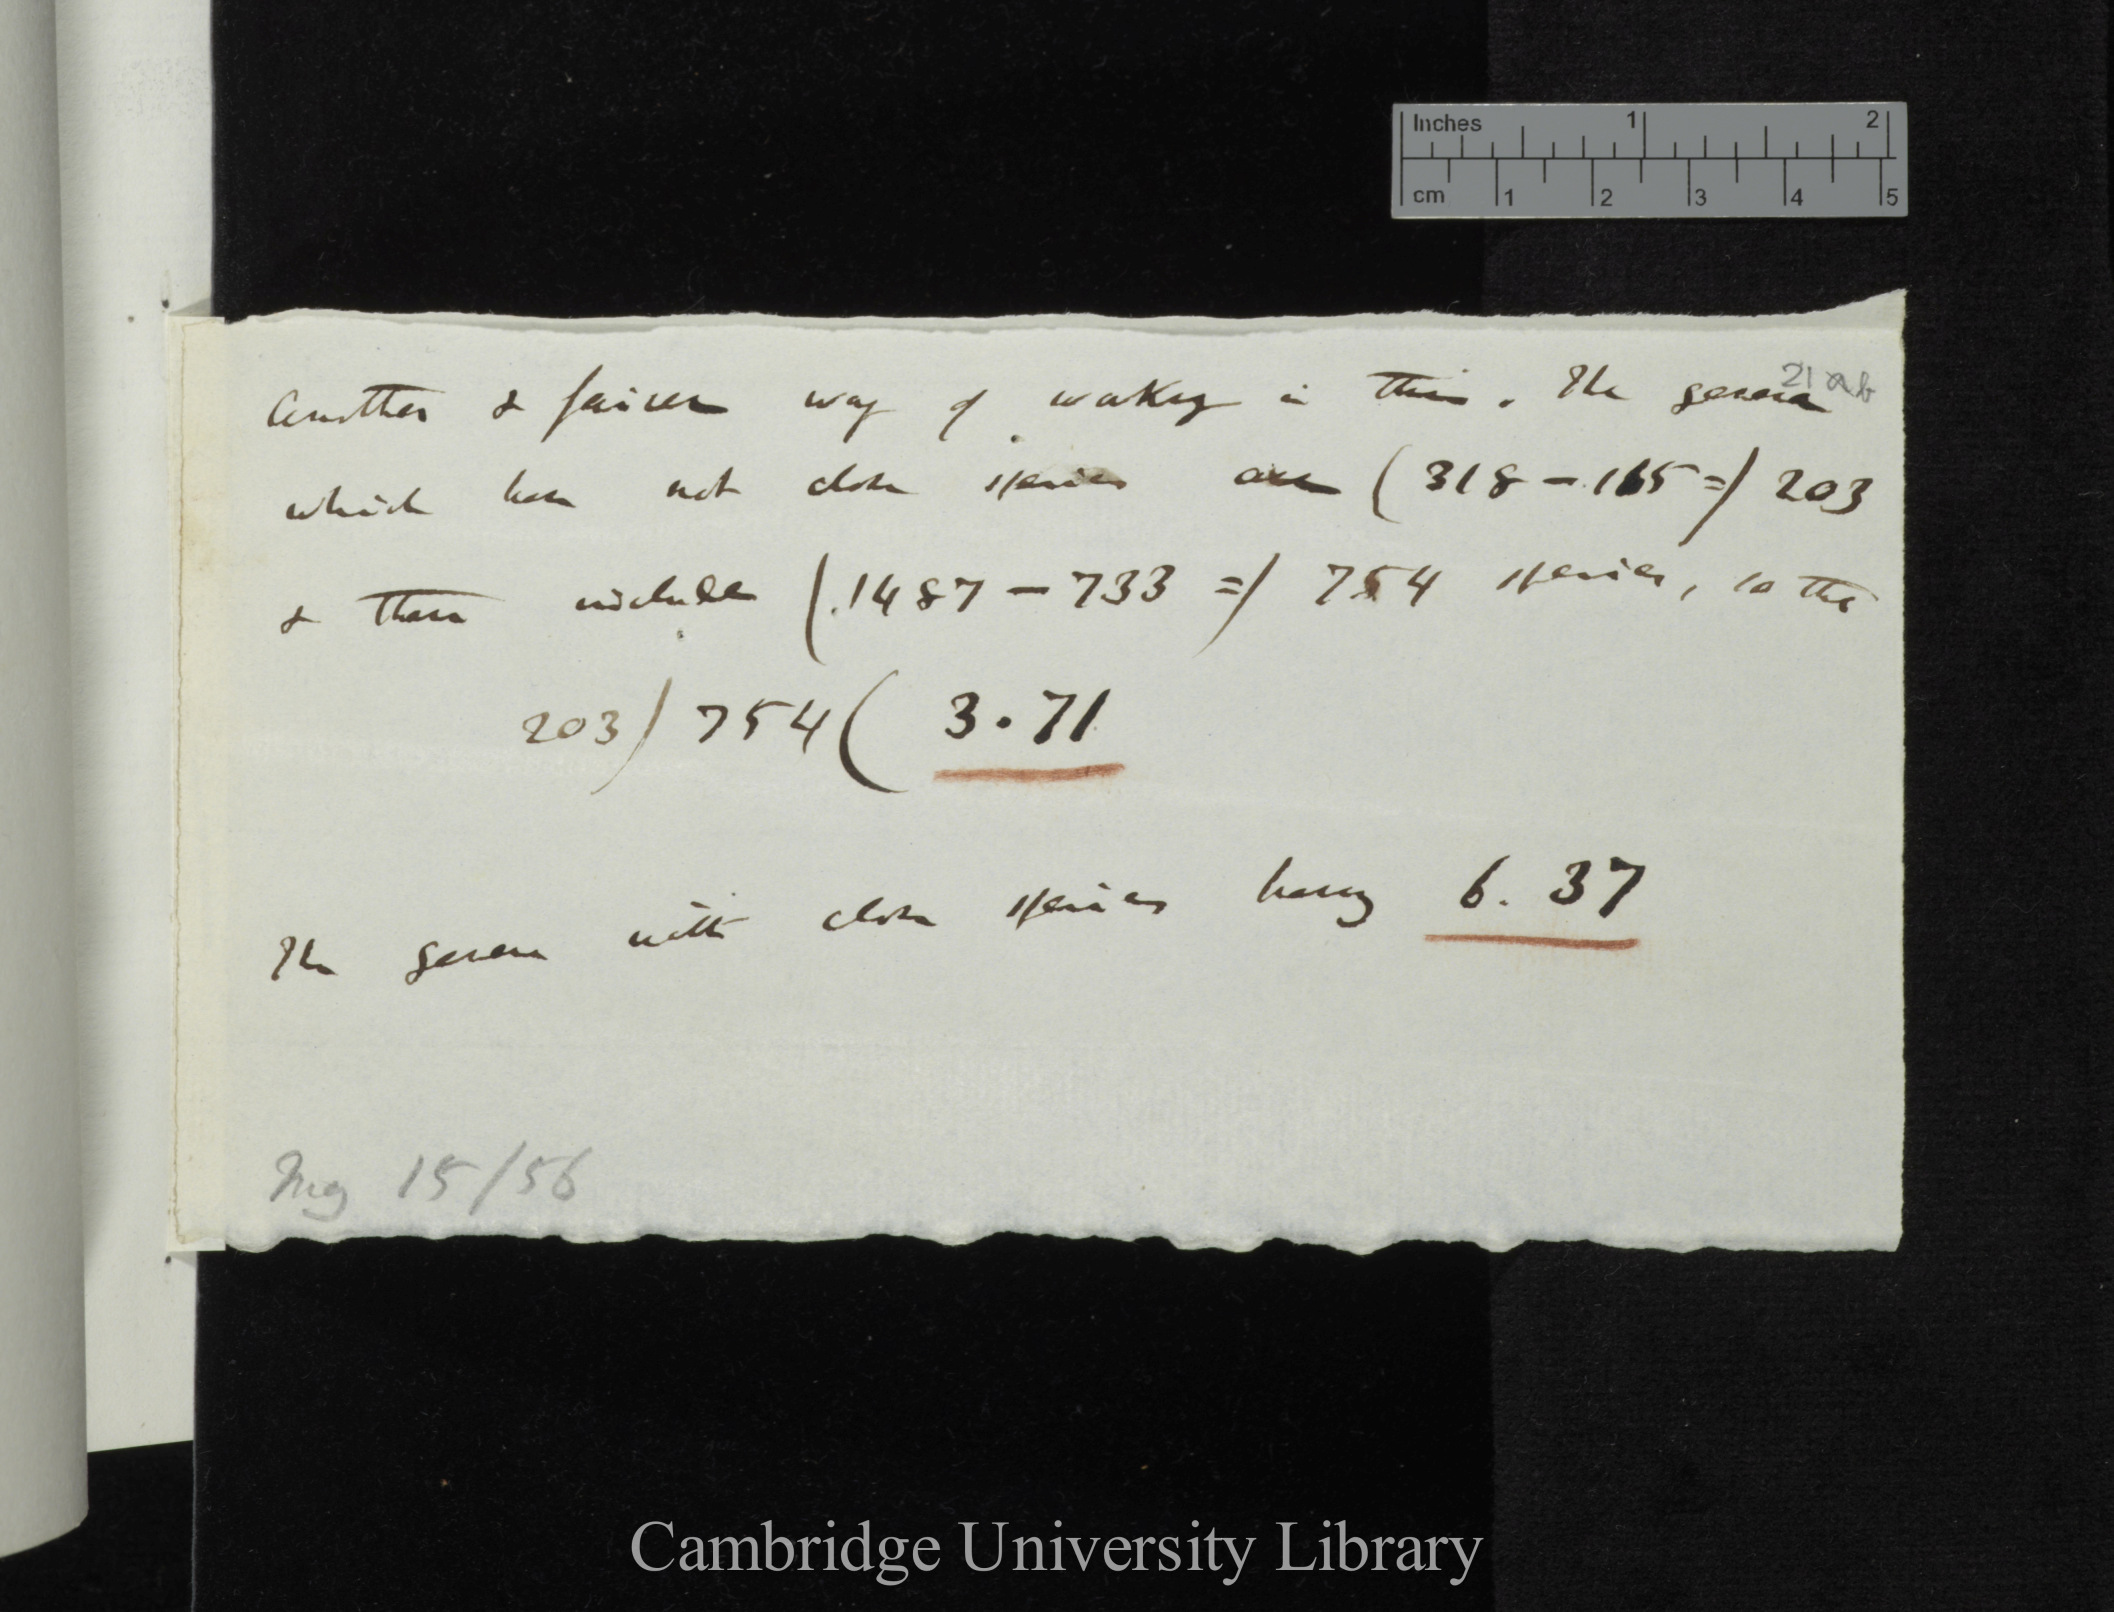 Inches 1 2
cm 1 2 3 4 5
21 a b
Another & fairer way of working is this. The genera
which have not close species are (318 - 115 =) 203
& these include (1487 - 733 =) 754 species, so that
203) 754 ( 3.71
The genera with close species having 6.37
15/56
Cambridge University Library